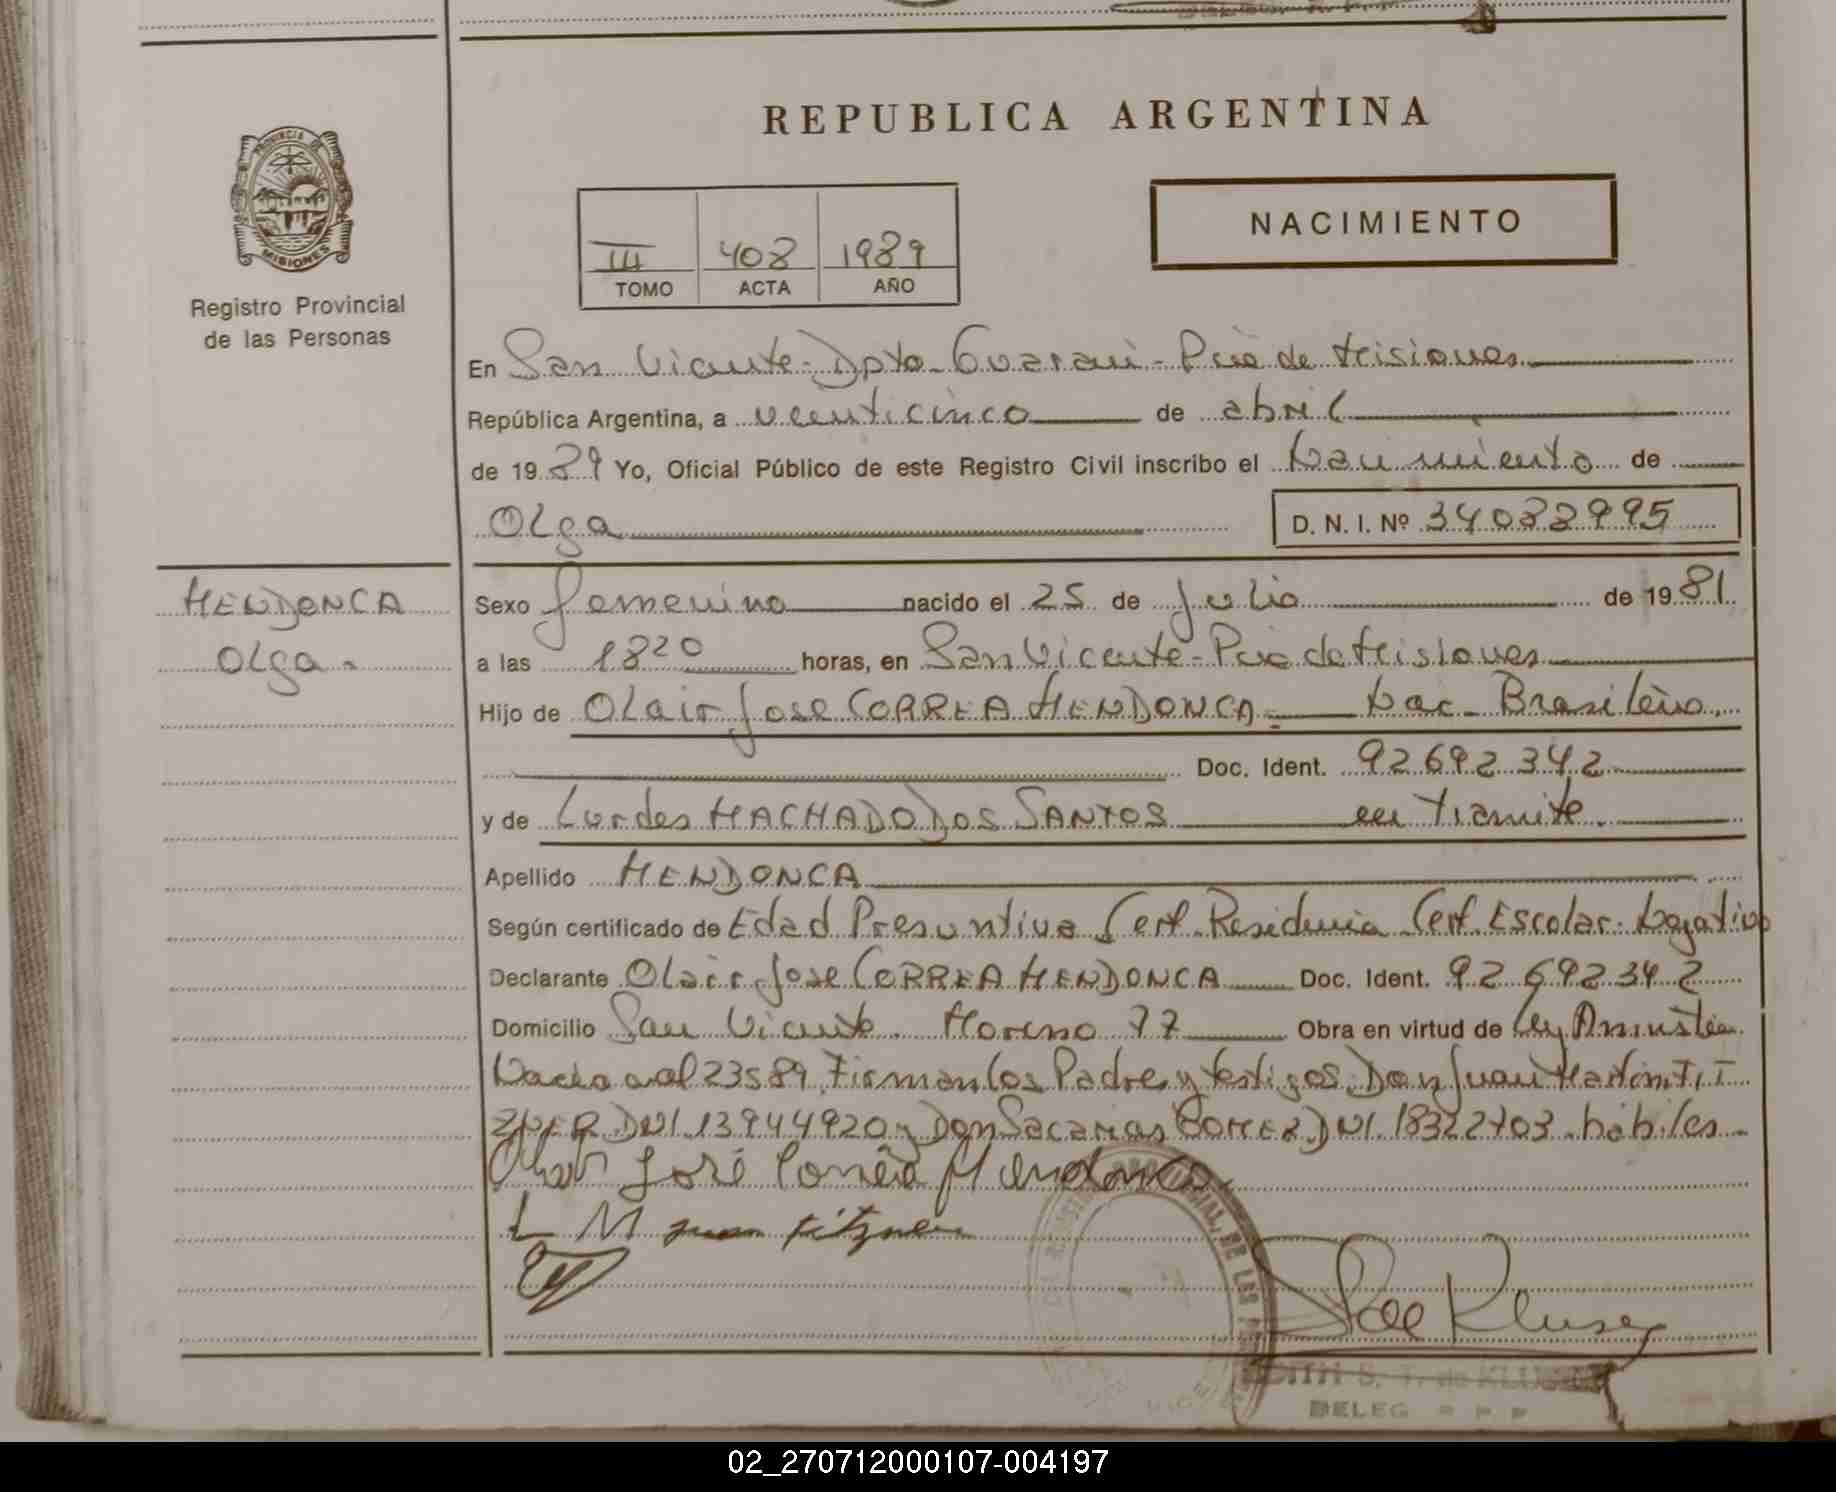 REPUBLICA ARGENTINA
PROVINCIA DE
MISIONES
Registro Provincial
de las Personas
NACIMIENTO
III 408 1989
TOMO ACTA AÑO
En San Vicente - Dpto. Guarani - Pcia de Misiones
República Argentina, a veinticinco de abril
de 1989 Yo, Oficial Público de este Registro Civil inscribo el Nacimiento de
Olga D. N. I. Nº 34088995
MENDONCA
Olga.
Sexo femenino nacido el 25 de Julio de 1981
a las 18 20 horas, en San Vicente - Pcia de Misiones
Hijo de Olair Jose CORREA MENDONCA - Nac. Brasileño.
Doc. Ident. 92692342
y de Lurdes MACHADO DOS SANTOS en tramite.
Apellido MENDONCA
Según certificado de Edad Presuntiva Cert. Residencia Cert. Escolar. Negativo
Declarante Olair Jose CORREA MENDONCA Doc. Ident. 92692342
Domicilio San Vicente. Moreno 77 Obra en virtud de Ley Amnistia
Nacional 23589 Firman los Padres y testigos Don Juan Martin TIT
ZNER DNI. 13944920 y Don Sacarias DNI. 18322703. habiles.
José Mendonca
L M juan titzner
S. T. de KLUSE
DELEG R P P
02_270712000107-004197